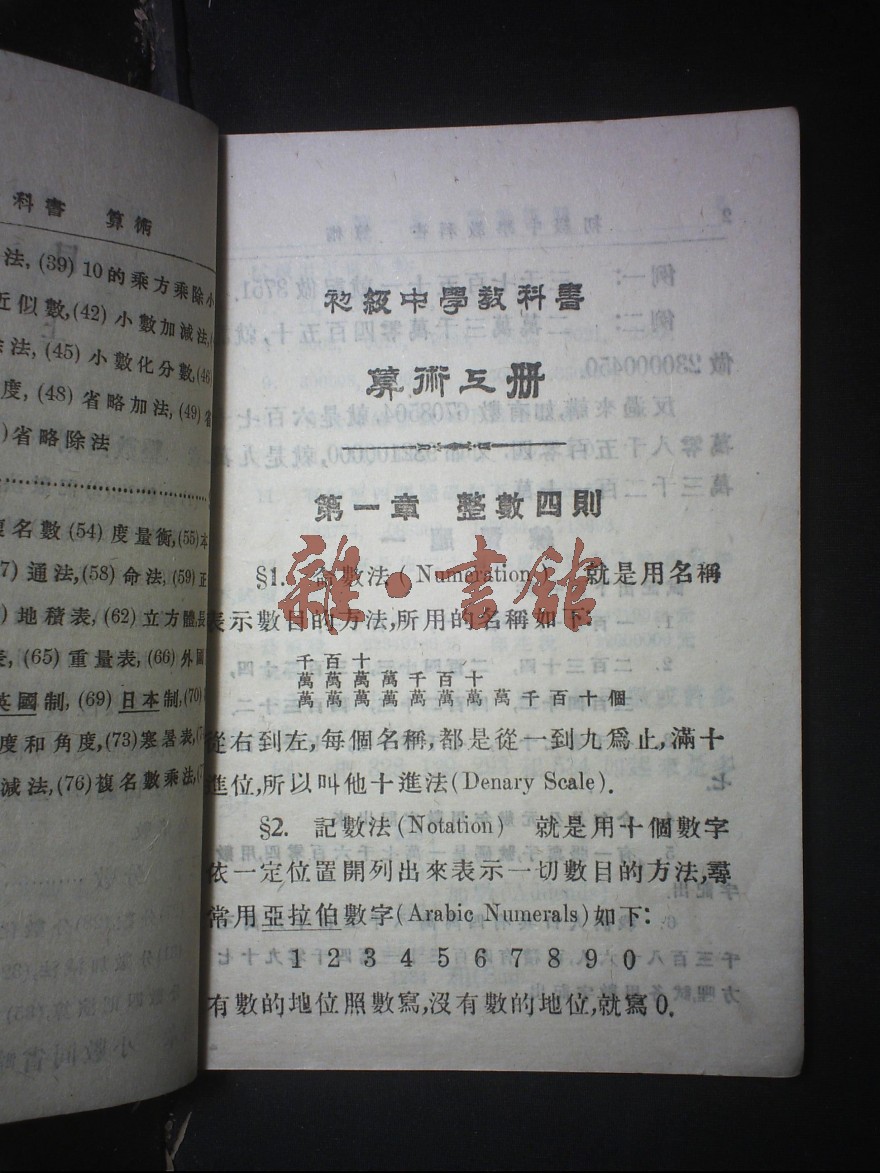 科書 算術
法, (39) 10的乘方乘除小
近似數,(42) 小數加減法,
法, (45) 小數化分數,(46)
度, (48) 省略加法, (49) 省
)省略除法
名數 (54) 度量衡,(55)本
7) 通法,(58) 命法, (59)正
) 地積表, (62) 立方體長
, (65) 重量表, (66) 外國
英國制, (69) 日本制,(70)
度和角度,(73)寒暑表,(7
減法,(76)複名數乘法,(7
初級中學教科書
算術上册
第一章 整數四則
§1. 命數法 (Numeration) 就是用名稱
表示數目的方法,所用的名稱如下:
千百十
萬萬萬萬千百十
萬萬萬萬萬萬萬萬千百十個
從右到左,每個名稱,都是從一到九爲止,滿十
進位,所以叫他十進法(Denary Scale).
§2. 記數法(Notation) 就是用十個數字
依一定位置開列出來表示一切數目的方法,尋
常用亞拉伯數字(Arabic Numerals)如下:
1 2 3 4 5 6 7 8 9 0
有數的地位照數寫,沒有數的地位,就寫0.
雜·書館